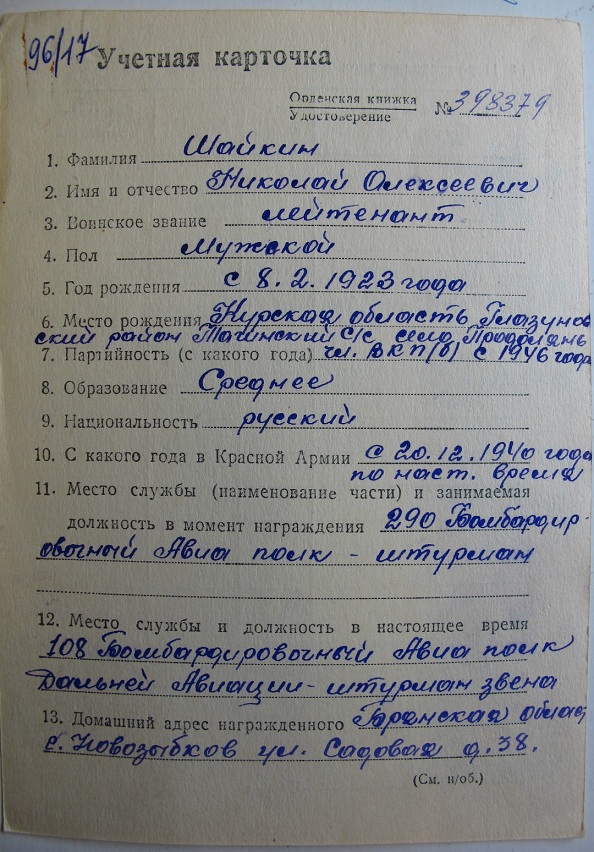 96/17 Учетная карточка
Орденская книжка
Удостоверение № 398379
1. Фамилия Шайкин
2. Имя и отчество Николай Алексеевич
3. Воинское звание лейтенант
4. Пол Мужской
5. Год рождения с 8.2.1923 года
6. Место рождения Курская область Глазунов
ский район Тагинский с/с село
7. Партийность (с какого года) чл. ВКП(б) с 1946 года
8. Образование Среднее
9. Национальность русский
10. С какого года в Красной Армии с 20.12.1940 года
по наст. время
11. Место службы (наименование части) и занимаемая
должность в момент награждения 290 Бомбардир-
овочный Авиа полк - штурман
12. Место службы и должность в настоящее время
108 Бомбардировочный Авиа полк
Дальней Авиации - штурман звена
13. Домашний адрес награжденного Брянская облас
г. Новозыбков ул. Садовая д. 38.
(См. н/об.)